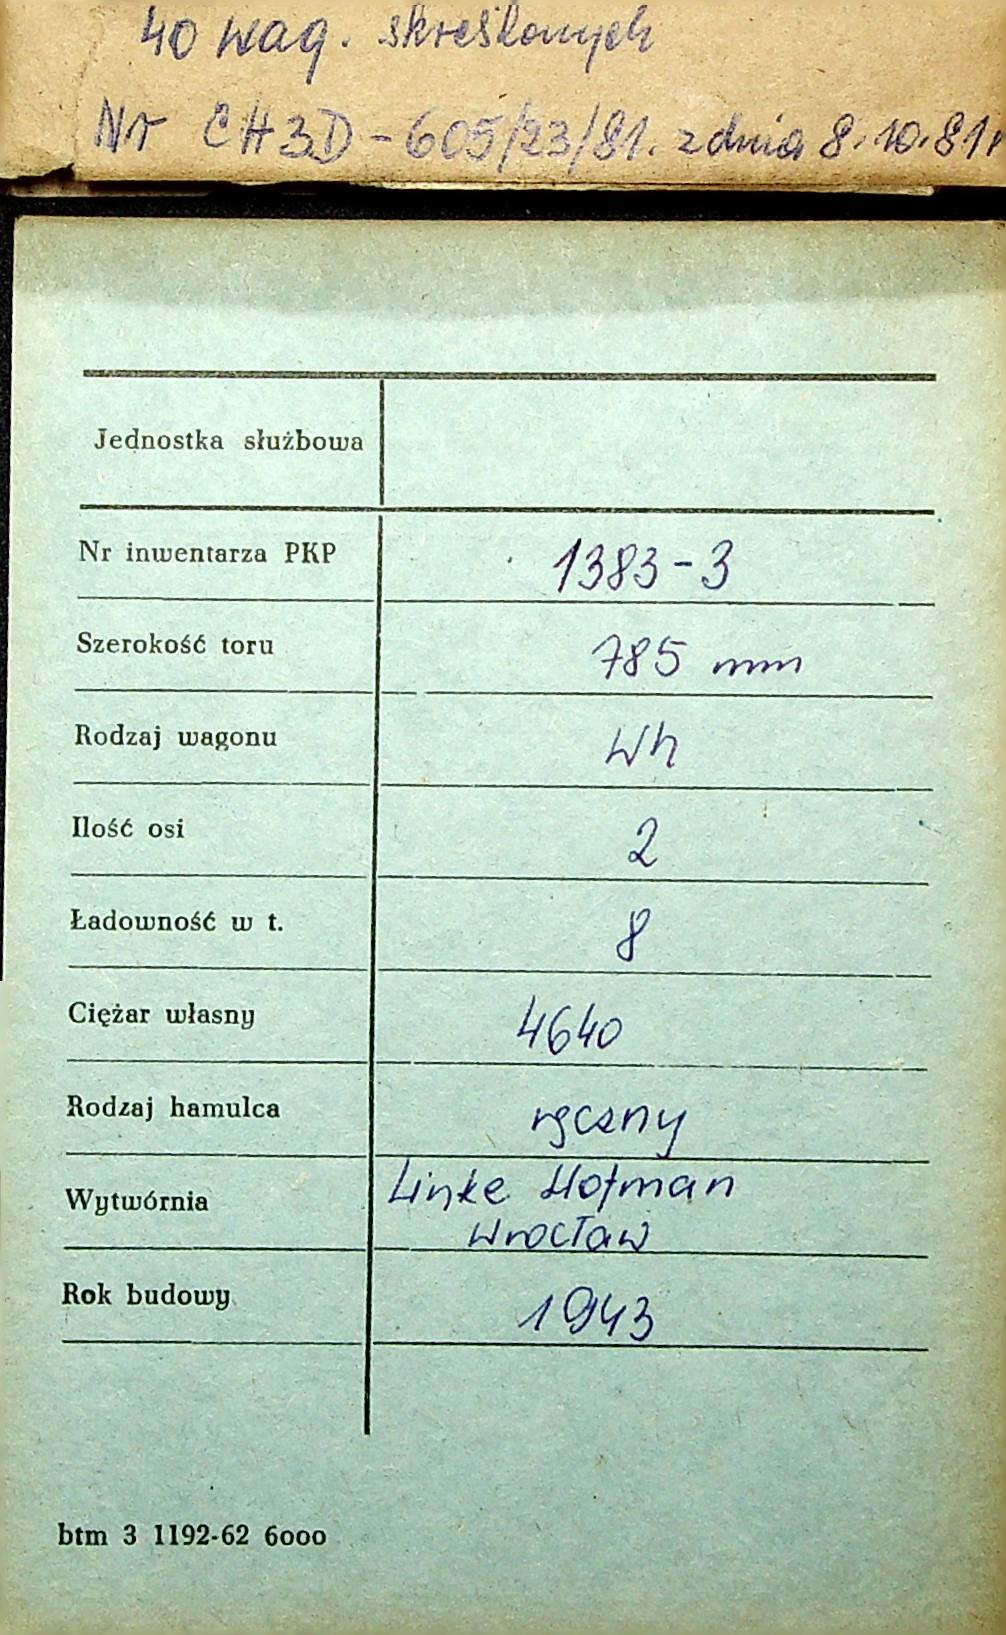 40 wag. skreślonych
Nr CH3D-605/23/81. z dnia 8.10.81r
Jednostka służbowa
Nr inwentarza PKP 1383-3
Szerokość toru 785 mm
Rodzaj wagonu Wh
Ilość osi 2
Ładowność w t. 8
Ciężar własny 4640
Rodzaj hamulca ręczny
Wytwórnia Linke Hofman
Wrocław
Rok budowy 1943
btm 3 1192-62 6000